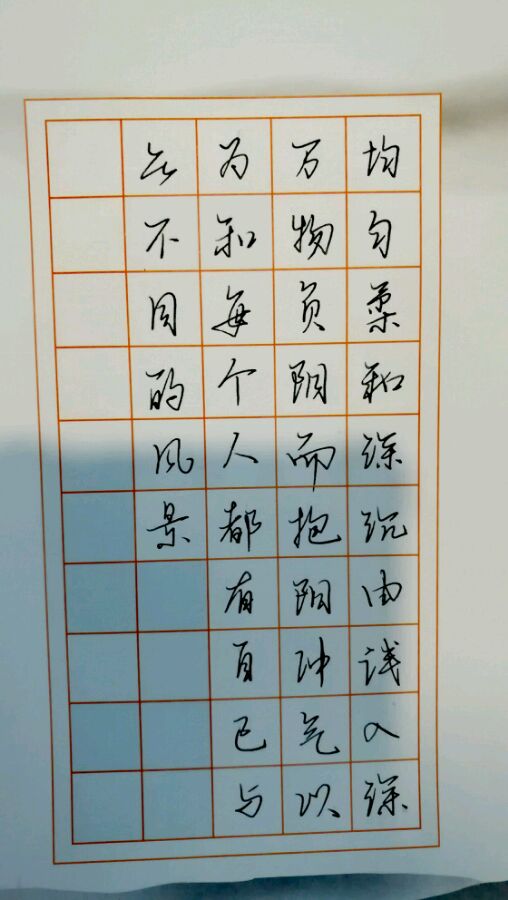 均匀柔和深沉由浅入深
万物负阴而抱阳冲气以
为和每个人都有自己与
众不同的风景